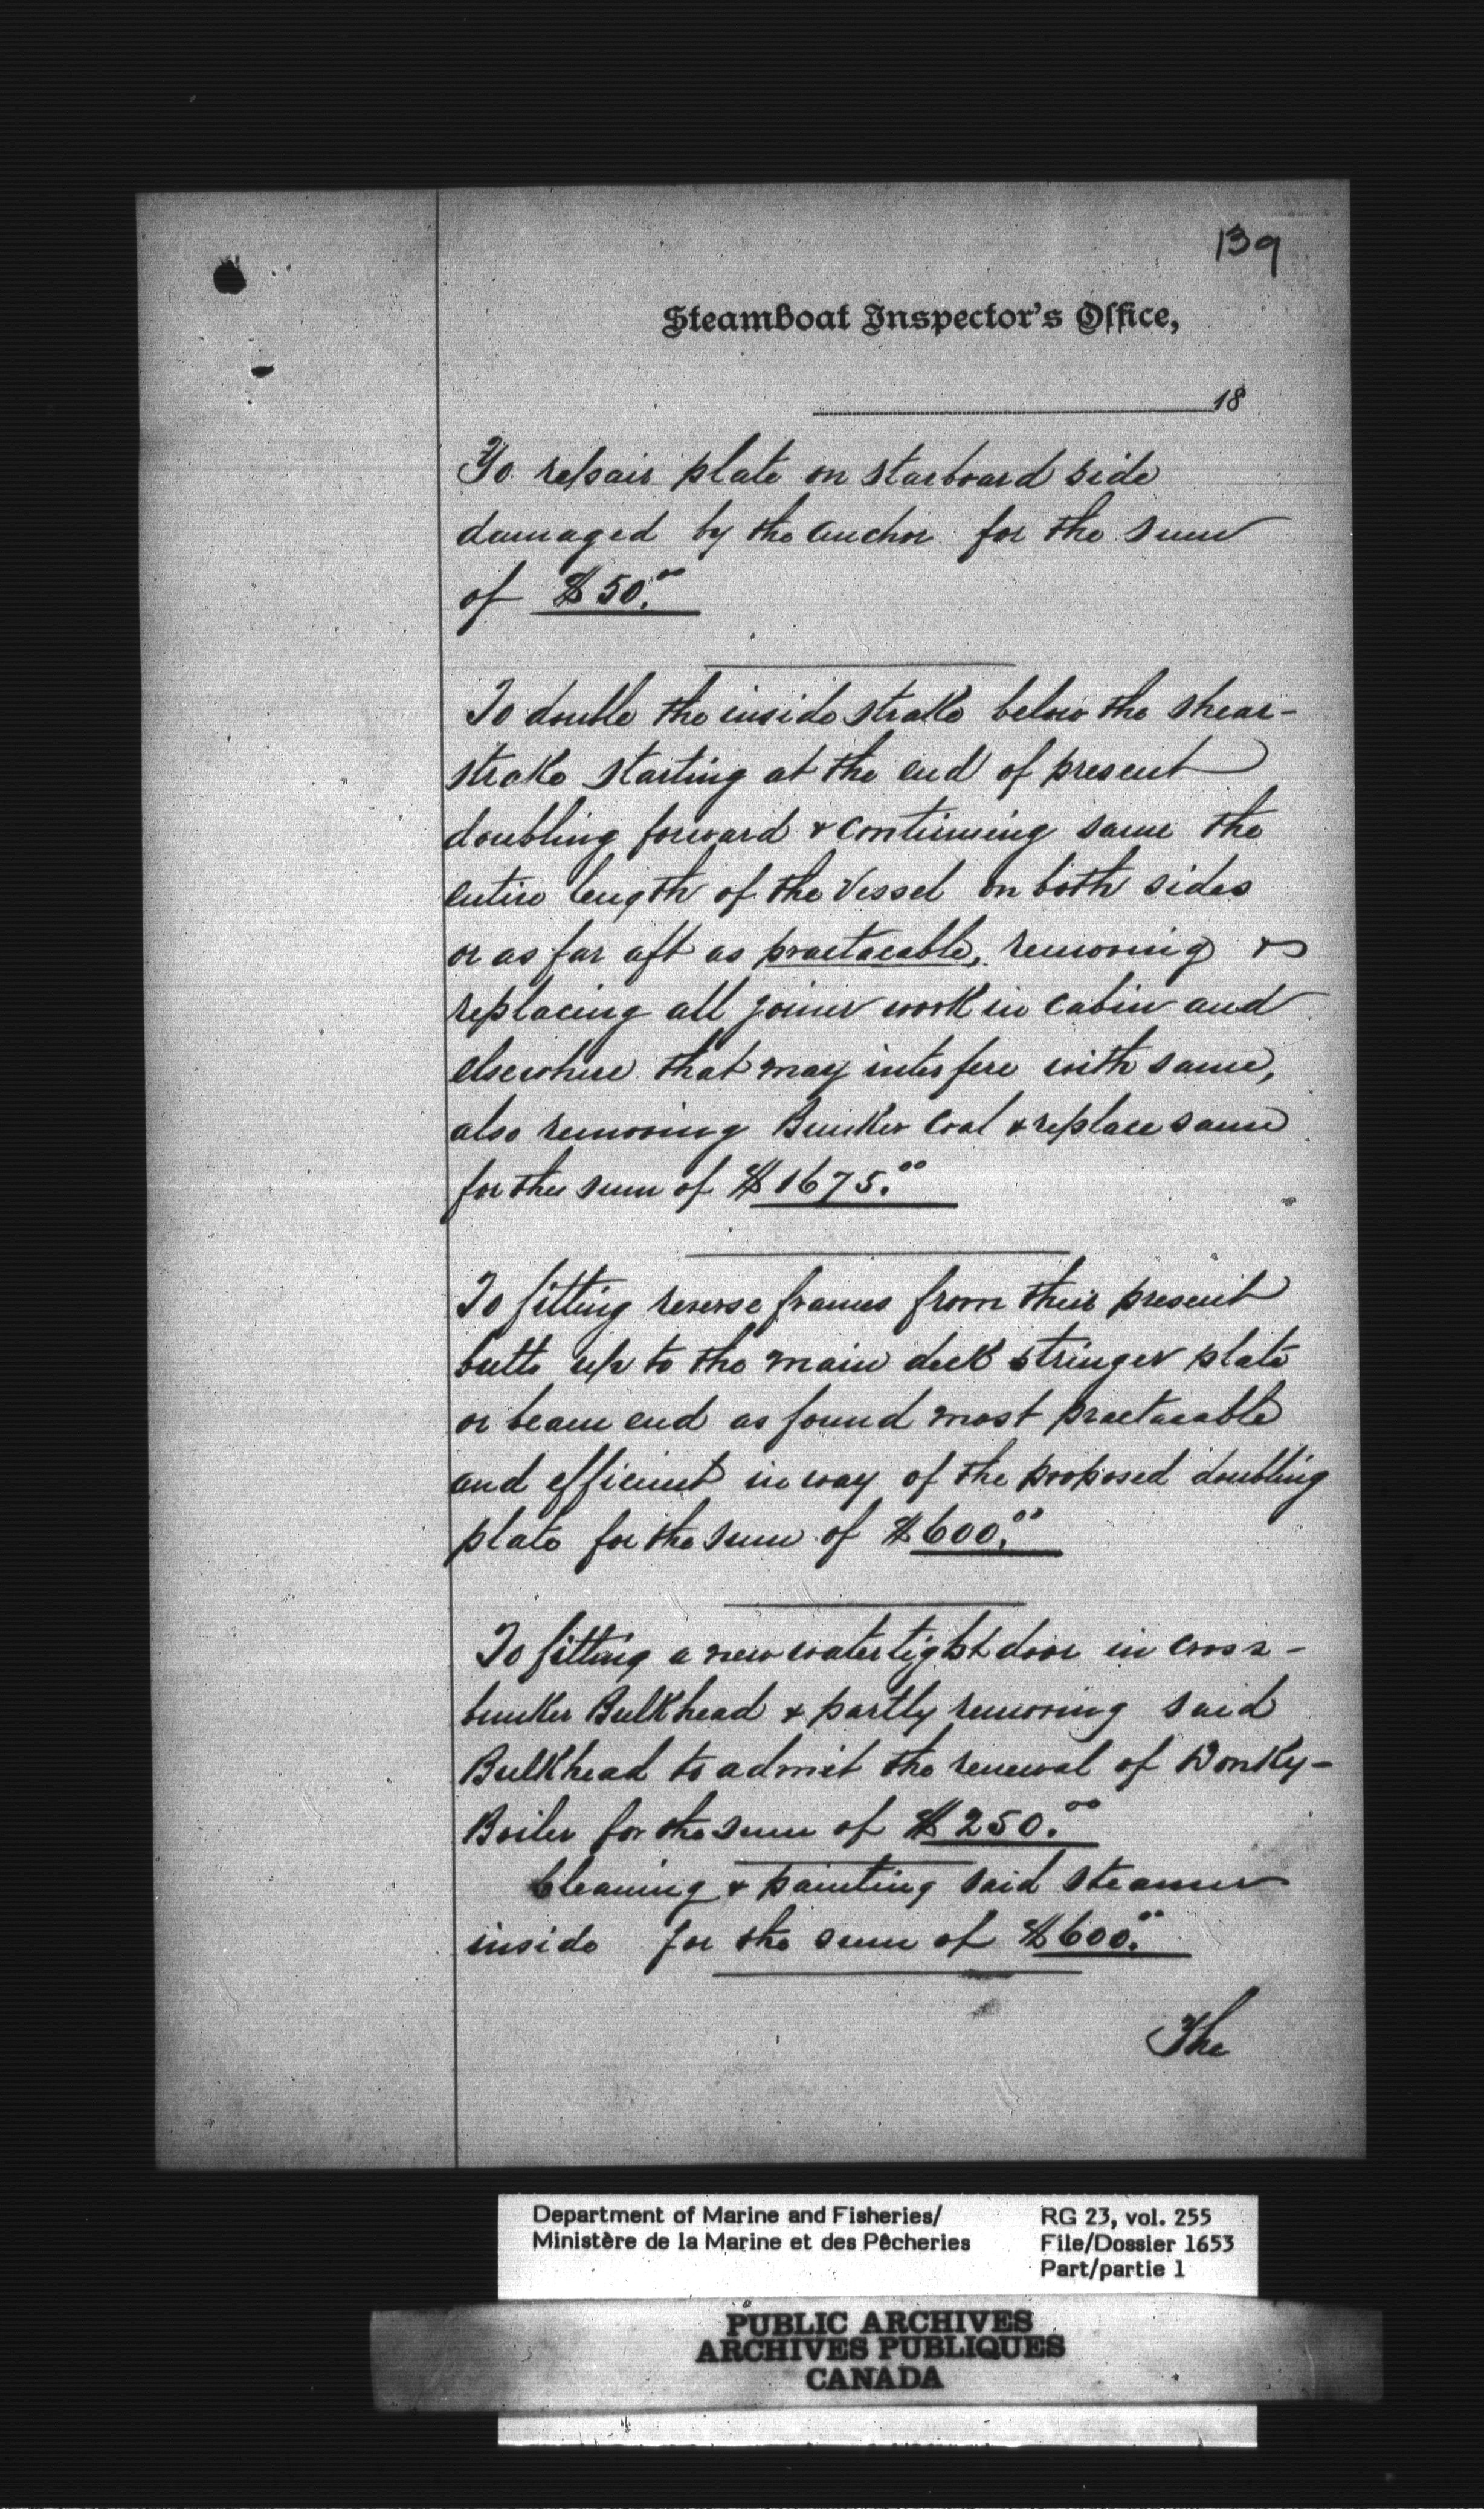 139
Steamboat Inspector's Office,
18
To repair plate on starboard side
damaged by the anchor for the sum
of $50.00
To double the inside strake below the shear-
strake starting at the end of present
doubling forward & continuing same the
entire length of the Vessel on both sides
or as far aft as practacable, removing &
replacing all joiner work in cabin and
elsewhere that may interfere with same,
also removing Bunker Coal & replace same
for the sum of $1675.00
To fitting reverse frames from their present
butts up to the main deck stringer plate
or beam end as found most practacable
and efficient in way of the proposed doubling
plate for the sum of $600.00
To fitting a new watertight door in cross-
bunker Bulkhead & partly removing said
Bulkhead to admit the renewal of Donky-
Boiler for the sum of $250.00
Cleaning & painting said steamer
inside for the sum of $600.00
The
Department of Marine and Fisheries/
Ministère de la Marine et des Pêcheries
RG 23, vol. 255
File/Dossier 1653
Part/partie 1
PUBLIC ARCHIVES
ARCHIVES PUBLIQUES
CANADA